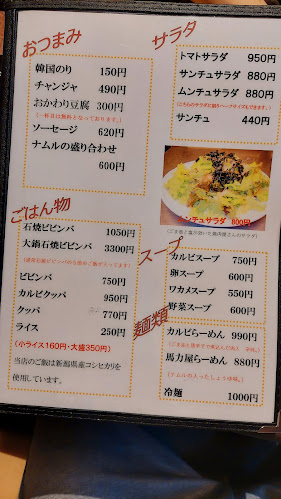 おつまみ
韓国のり 150円
チャンジャ 490円
おかわり豆腐 300円
(一杯目は無料となっております。)
ソーセージ 620円
ナムルの盛り合わせ
600円
サラダ
トマトサラダ 950円
サンチュサラダ 880円
ムンチュサラダ 880円
(こちらのサラダに限りハーフサイズもできます。)
サンチュ 440円
ムンチュサラダ 800円
ごはん物
石焼ビビンバ 1050円
大鍋石焼ビビンバ 3300円
ビビンバ 750円
カルビクッパ 950円
クッパ 770円
ライス 250円
(小ライス160円・大盛350円)
当店のご飯は新潟県産コシヒカリを
使用しています。
スープ
カルビスープ 750円
卵スープ 600円
ワカメスープ 550円
野菜スープ 600円
麺類
カルビらーめん 990円
馬力屋らーめん 880円
(ナムルの入ったしょうゆ味。)
冷麺 1000円